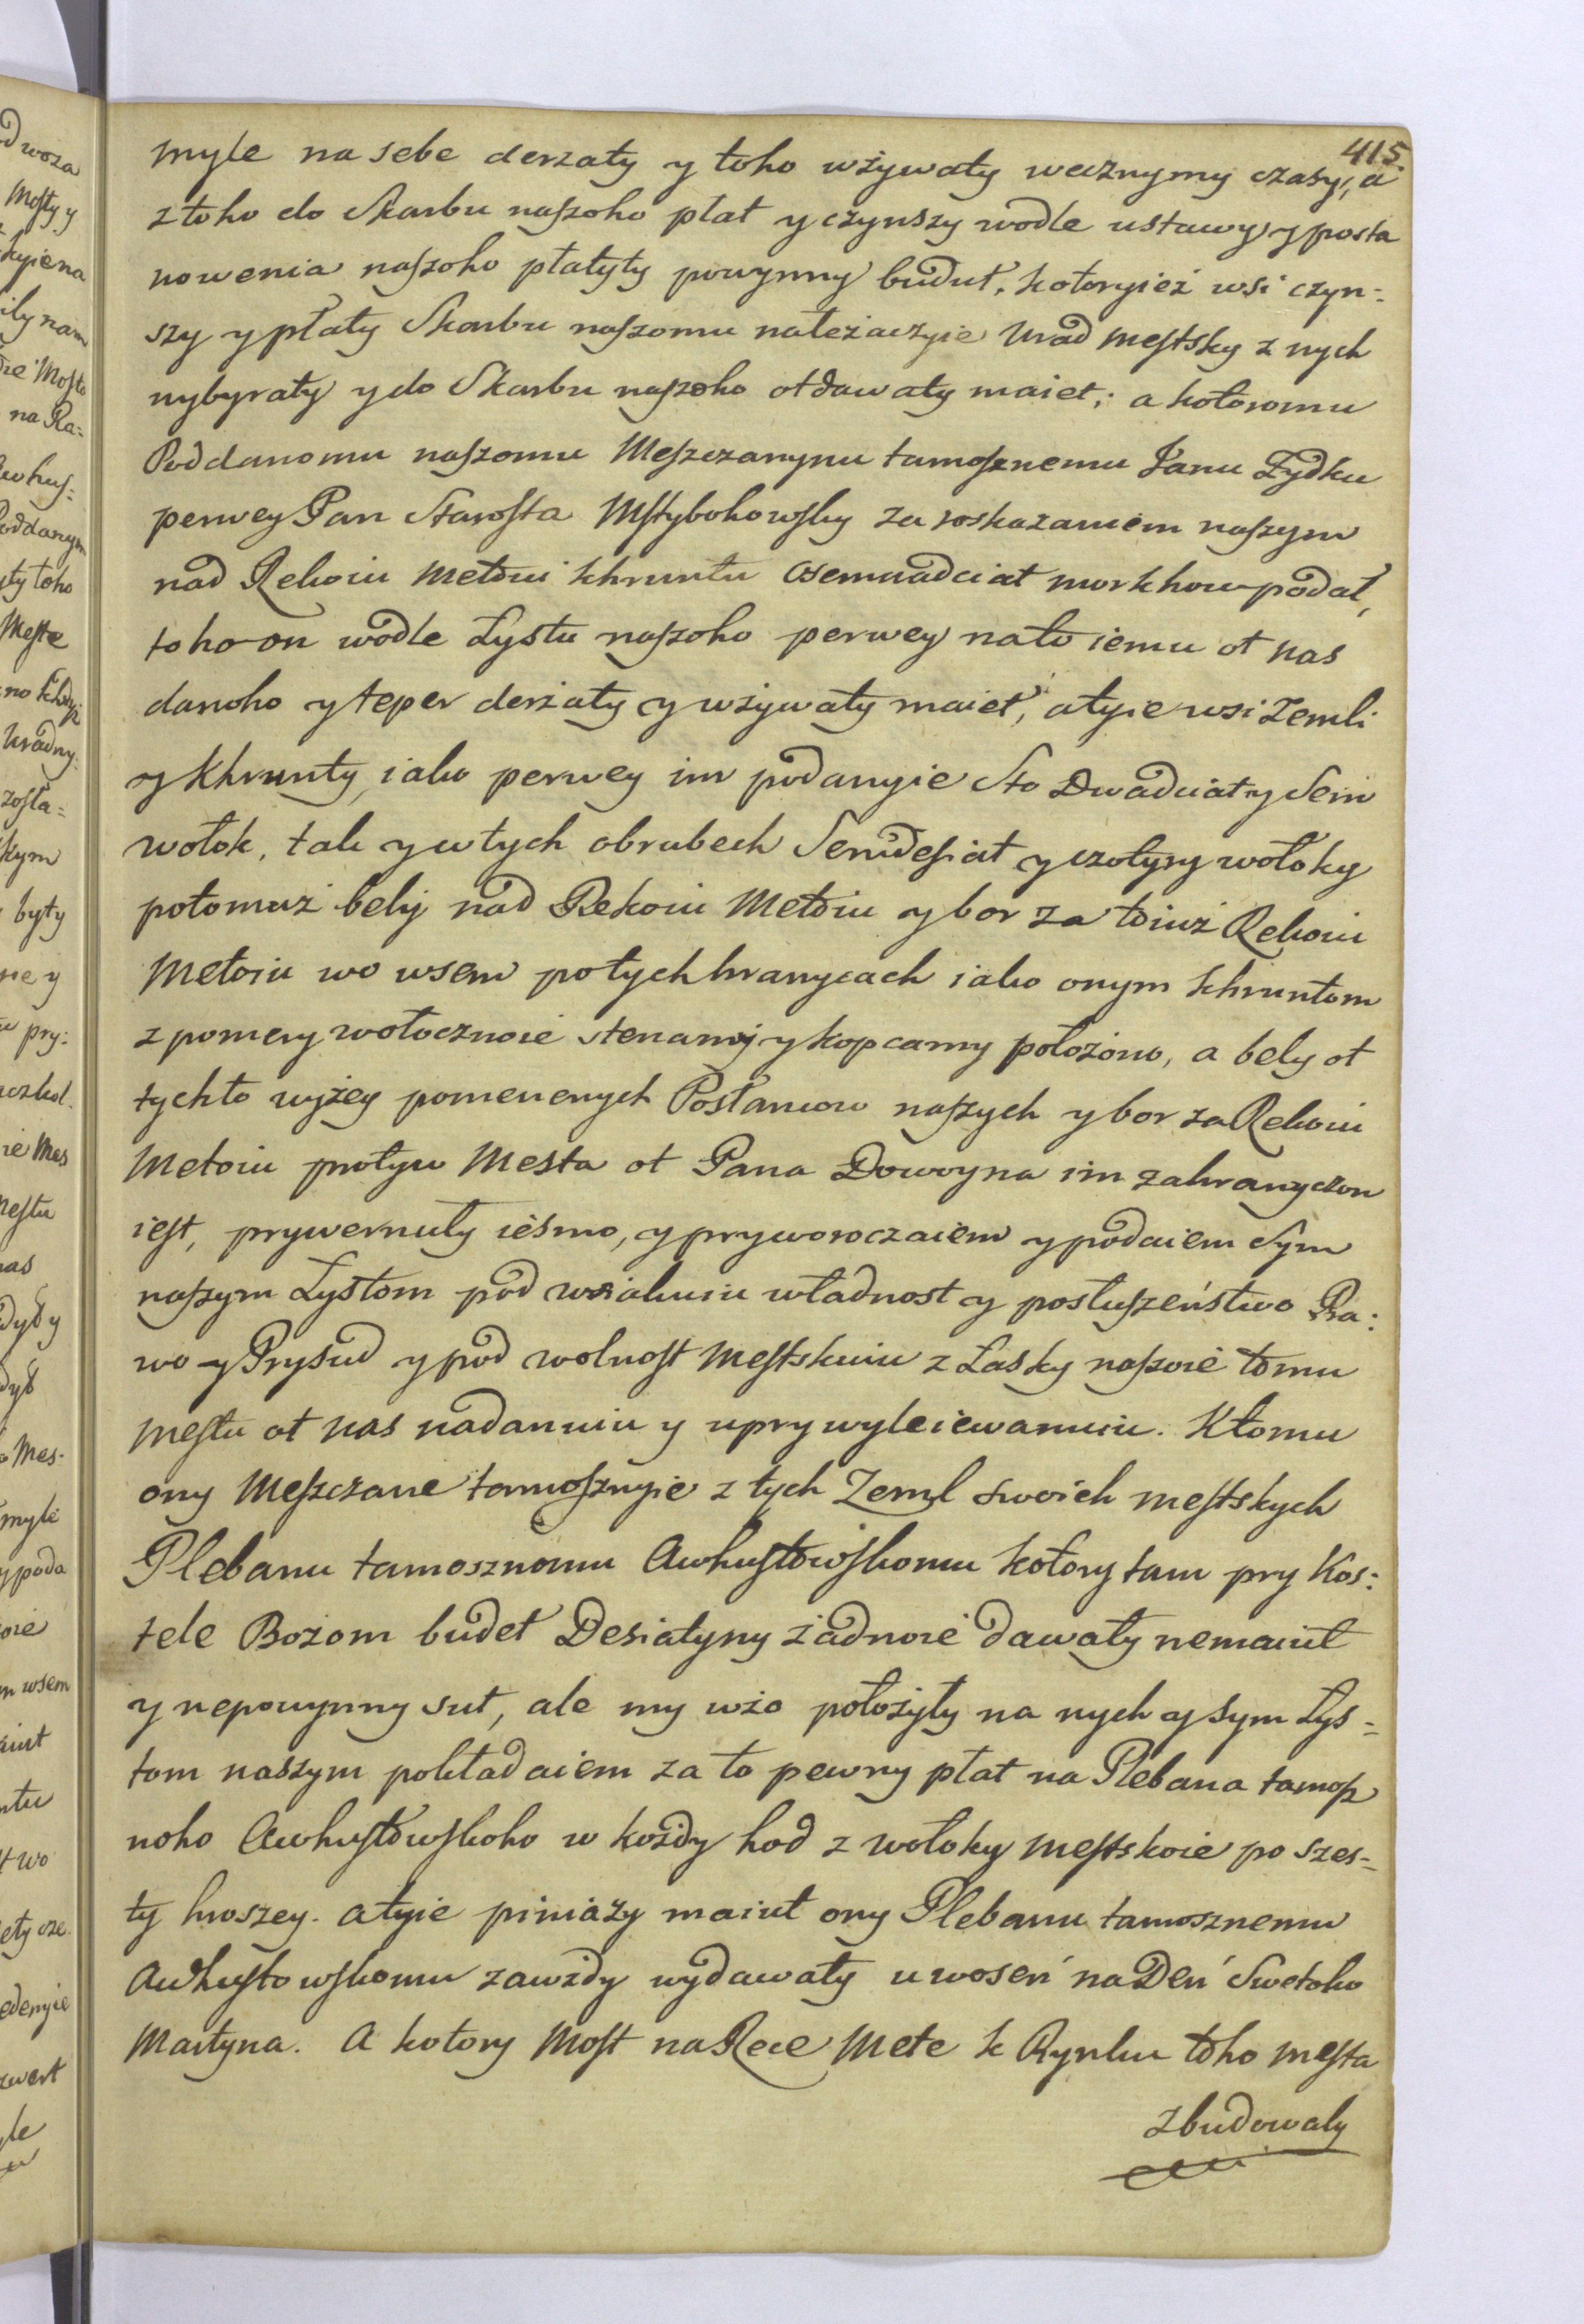 415.
myle na sebe derzaty y toho wżywaty wecznymy czasy, a
z toho do Skarbu naszoho płat y czynszy wodle ustawy y posta
nowenia naszoho płatyty powynny budut, kotoryież wsi czyn-
szy y płaty Skarbu naszomu należaczyie Urad mestsky z nych
wybyraty y do Skarbu naszoho otdawaty maiet; a kotoromu
Poddanomu naszomu Meszczanynu tamosznemu Janu Żydku
perwey Pan Starosta Mstybohowsky za roskazaniem naszym
nad Rekoiu Metoiu khruntu Osemnadciat morkhow podał,
toho on wodle Lystu naszoho perwey nato iemu ot nas
danoho y teper derżaty y wżywaty maiet, a tyie wsi Zemli
y Khrunty, iako perwey im podanyie Sto Dwadciat y Sem
wołok, tak y w tych obrubech Semdesiat y czotyry wołoky
potomuż bely nad Rekoiu Metoiu y bor za toiuż Rekoiu
Metoiu wo wsem po tych hranycach iako onym khruntom
z pomery wołocznoie stenamy y kopcamy położono, a bely ot
tychto wyżey pomenenych Posłancow naszych y bor za Rekoiu
Metoiu protyw Mesta ot Pana Dowoyna im zahranyczon
iest, prywernuly iesmo, y pryworoczaiem y podaiem Sym
naszym Lystom pod wsiakuiu władnost y posłuszeństwo Pra:
wo y Prysud y pod wolnost Mestskuiu z Łasky naszoie tomu
mestu ot nas nadannuiu y uprywyleiewannuiu. Ktomu
ony Meszczane tamosznyie z tych Zeml swoich mestskych
Plebanu tamosznomu Awhustowskomu kotory tam pry Kos:
tele Bożom budet Desiatyny żadnoie dawaty nemaiut
y nepowynny sut, ale my wżo położyły na nych y sym Lys-
tom naszym pokładaiem za to pewny płat na Plebana tamosz
noho Awhustowskoho w kożdy hod z wołoky mestskoie po szes-
ty hroszey. a tyie piniazy maiut ony Plebanu tamosznemu
Awhustowskomu zawżdy wydawaty u woseń na Deń Swetoho
Martyna. A kotory Most na Rece Mete k Rynku toho mesta
zbudowaly